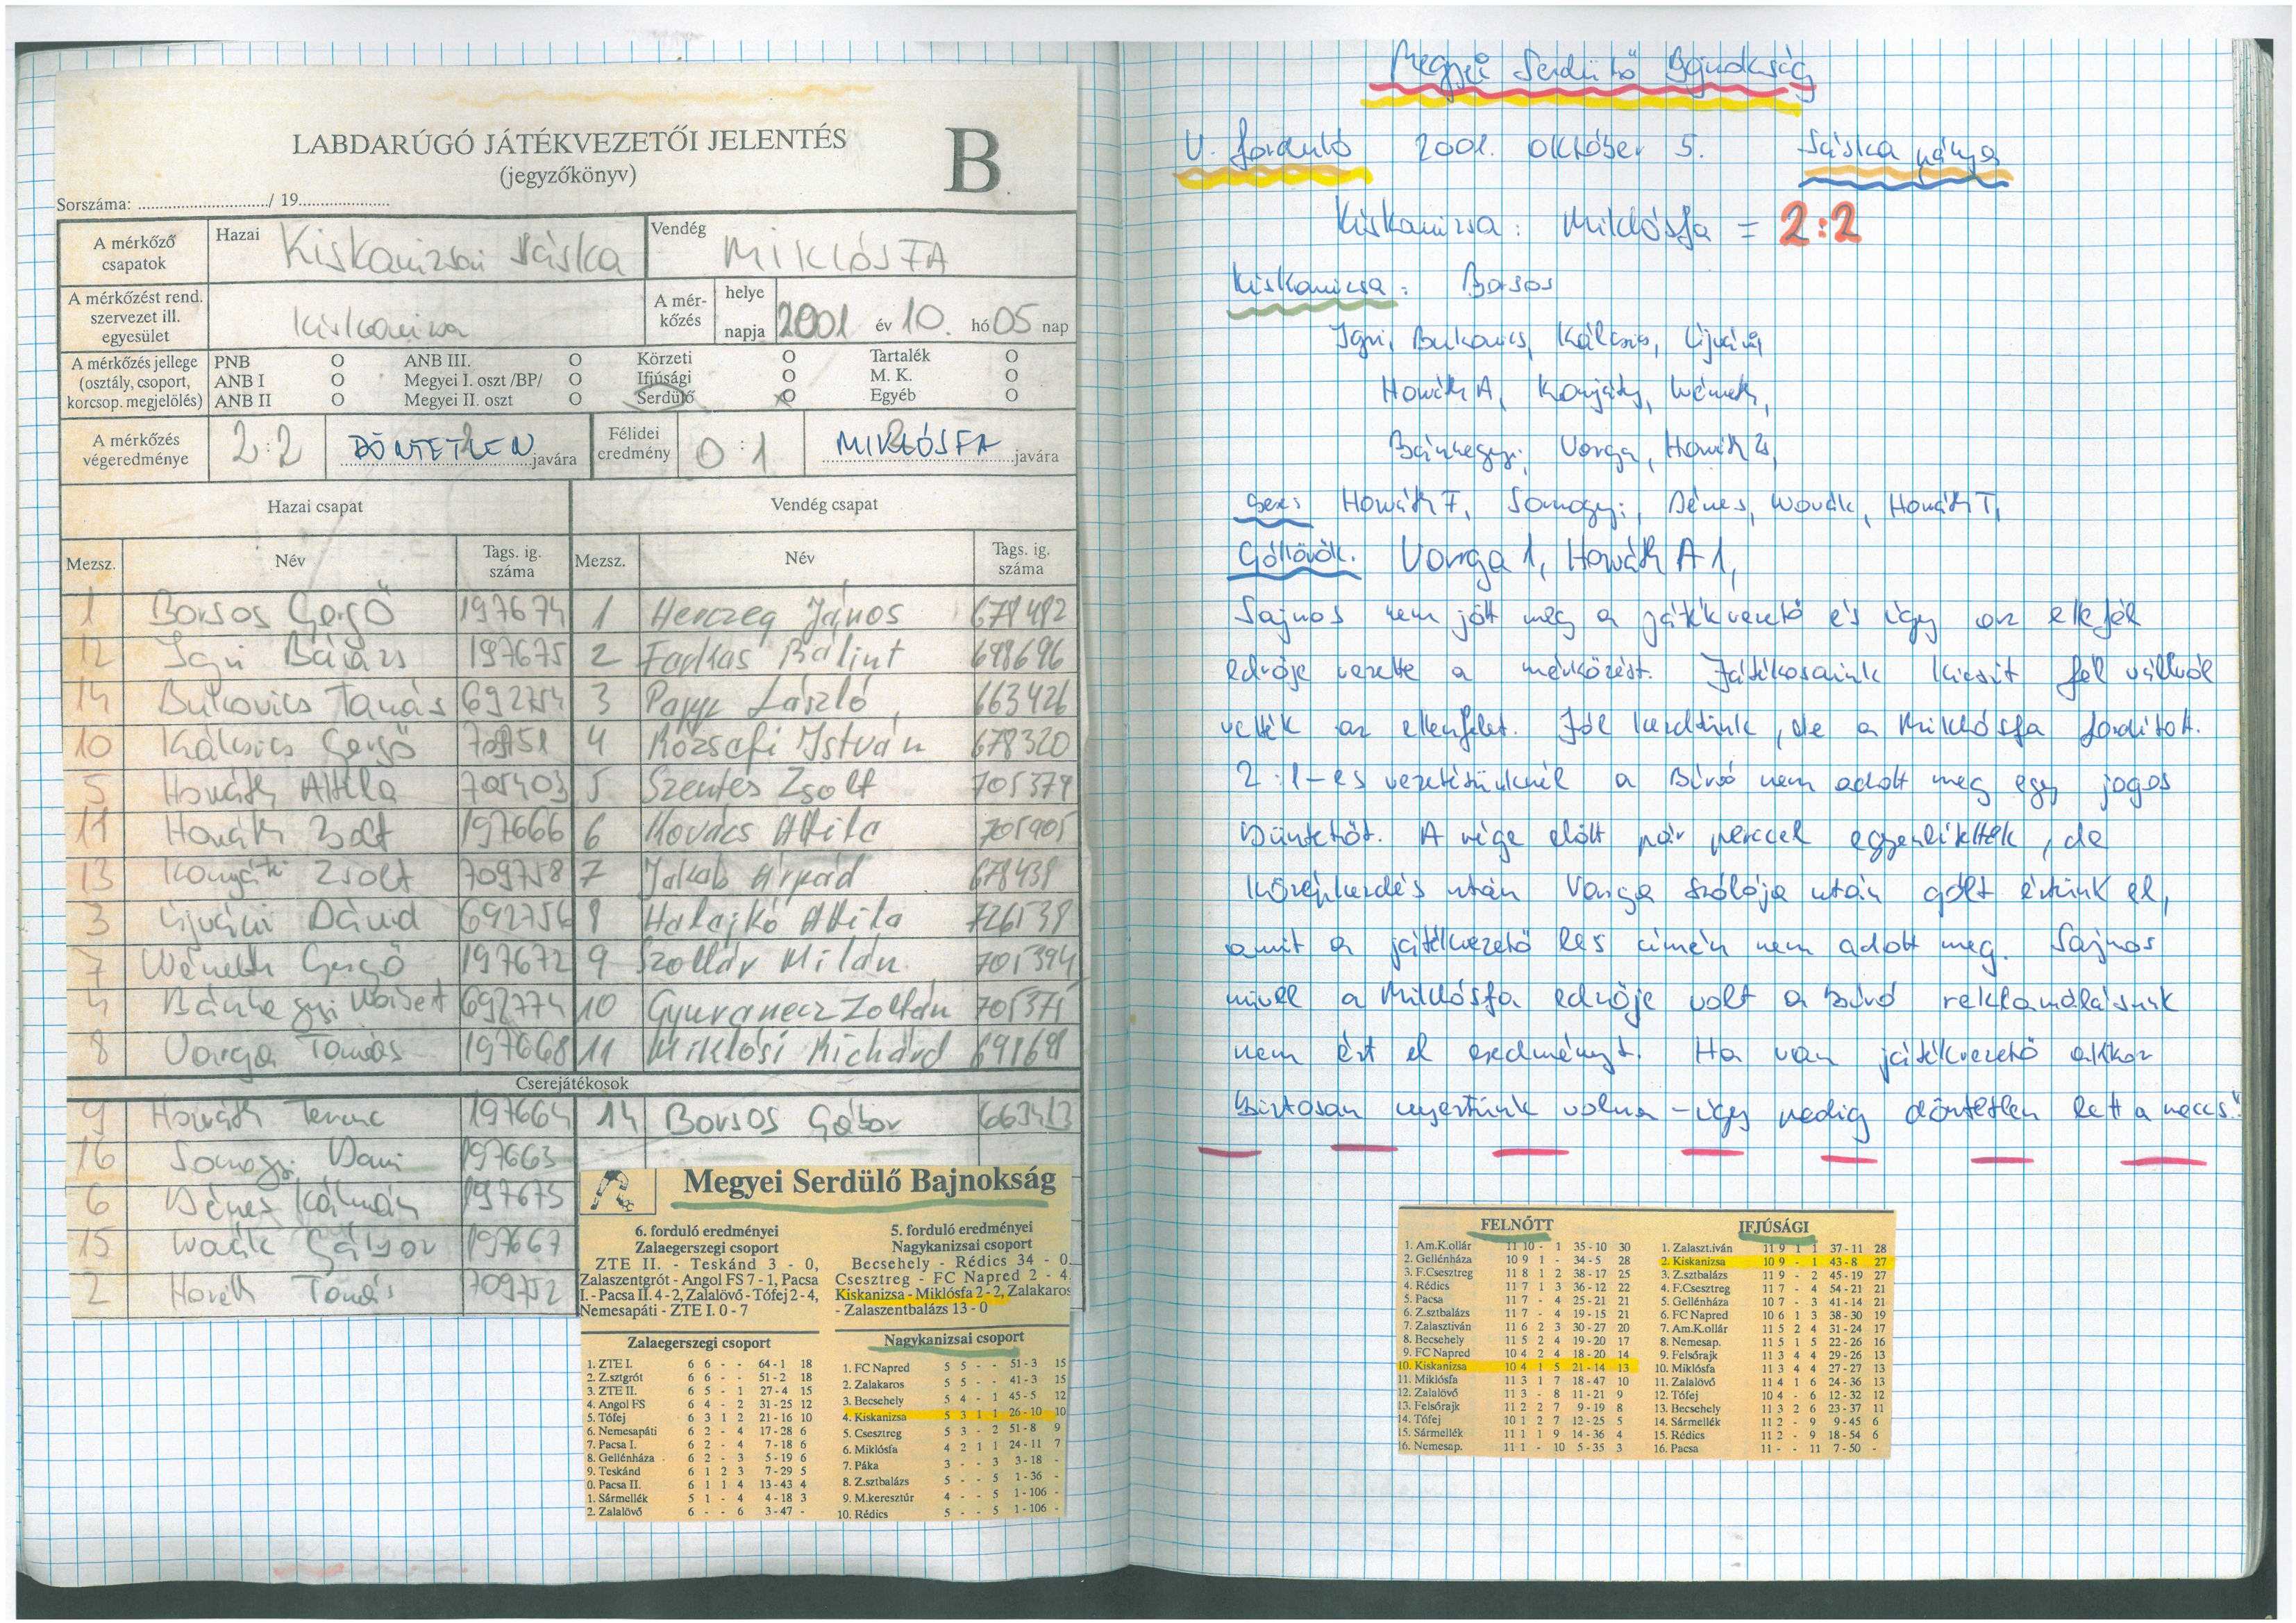 LABDARÚGÓ JÁTÉKVEZETŐI JELENTÉS
(jegyzőkönyv)
B
Sorszáma: ............................../ 19.....................
A mérkőző csapatok Hazai Kiskanizsai Sáska Vendég MIKLÓSFA
A mérkőzést rend. szervezet ill. egyesület Kiskanizsa A mérkőzés helye napja 2001 év 10. hó 05 nap
A mérkőzés jellege (osztály, csoport, korcsop. megjelölés)
PNB O ANB III. O Körzeti O Tartalék O
ANB I O Megyei I. oszt /BP/ O Ifjúsági O M. K. O
ANB II O Megyei II. oszt O Serdülő O Egyéb O
A mérkőzés végeredménye 2:2 DÖNTETLEN javára Félidei eredmény 0:1 MIKLÓSFA javára
Hazai csapat Vendég csapat
Mezsz. Név Tags. ig. száma Mezsz. Név Tags. ig. száma
1 Borsos Gergő 197674 1 Herczeg János 678482
12 Igri Balázs 197675 2 Farkas Bálint 698696
14 Bukovics Tamás 692754 3 Papp László 663426
10 Kálcsics Gergő 4 Rózsafi István 678320
5 Horváth Attila 705403 5 Szentes Zsolt 705379
11 Horváth Zsolt 197666 6 Kovács Attila 705905
13 Konyáti Zsolt 709758 7 Jakab Árpád 678438
3 Ujvári Dávid 692756 8 Halajkó Attila 726538
7 Németh Gergő 197672 9 Szollár Milán 705394
4 Bánhegyi Norbert 692774 10 Gyuranecz Zoltán 705375
8 Varga Tamás 197668 11 Miklósi Richárd 69168
Cserejátékosok
9 Horváth Ferenc 197664 14 Borsos Gábor 663413
16 Somogyi Dani 197663
6 Dénes Kálmán 197673
15 Novák Gábor 197667
2 Horváth Tamás 709752
Megyei Serdülő Bajnokság
6. forduló eredményei
Zalaegerszegi csoport
ZTE II. - Teskánd 3 - 0,
Zalaszentgrót - Angol FS 7 - 1, Pacsa
I. - Pacsa II. 4 - 2, Zalalövő - Tófej 2 - 4,
Nemesapáti - ZTE I. 0 - 7
5. forduló eredményei
Nagykanizsai csoport
Becsehely - Rédics 34 - 0.
Csesztreg - FC Napred 2 - 4.
Kiskanizsa - Miklósfa 2 - 2, Zalakaros
- Zalaszentbalázs 13 - 0
Zalaegerszegi csoport
1. ZTE I. 6 6 - - 64 - 1 18
2. Z.sztgrót 6 6 - - 51 - 2 18
3. ZTE II. 6 5 - 1 27 - 4 15
4. Angol FS 6 4 - 2 31 - 25 12
5. Tófej 6 3 1 2 21 - 16 10
6. Nemesapáti 6 2 - 4 17 - 28 6
7. Pacsa I. 6 2 - 4 7 - 18 6
8. Gellénháza 6 2 - 3 5 - 19 6
9. Teskánd 6 1 2 3 7 - 29 5
0. Pacsa II. 6 1 1 4 13 - 43 4
1. Sármellék 5 1 - 4 4 - 18 3
2. Zalalövő 6 - - 6 3 - 47 -
Nagykanizsai csoport
1. FC Napred 5 5 - - 51 - 3 15
2. Zalakaros 5 5 - - 41 - 3 15
3. Becsehely 5 4 - 1 45 - 5 12
4. Kiskanizsa 5 3 1 1 26 - 10 10
5. Csesztreg 5 3 - 2 51 - 8 9
6. Miklósfa 4 2 1 1 24 - 11 7
7. Páka 3 - - 3 3 - 18 -
8. Z.sztbalázs 5 - - 5 1 - 36 -
9. M.keresztúr 4 - - 5 1 - 106 -
10. Rédics 5 - - 5 1 - 106 -
Megyei Serdülő Bajnokság
V. forduló 2001. október 5. Sáska pálya
Kiskanizsa : Miklósfa = 2:2
Kiskanizsa: Borsos
Igri, Bukovics, Kálcsics, Ujvári,
Horváth A, Konyáti, Németh,
Bánhegyi, Varga, Horváth Zs,
Csere: Horváth F, Somogyi, Dénes, Novák, Horváth T,
Góllövők. Varga 1, Horváth A 1,
Sajnos nem jött meg a játékvezető és így az ellefél
edzője vezette a mérkőzést. Játékosaink kicsit fél vállról
vették az ellenfelet. Jól kezdtünk, de a Miklósfa fordított.
2:1-es vezetésünknél a Bíró nem adott meg egy jogos
Büntetőt. A vége előtt pár perccel egyenlítettek, de
középkezdés után Varga szólója után gólt értünk el,
amit a játékvezető les címén nem adott meg. Sajnos
mivel a Miklósfa edzője volt a bíró reklamálásunk
nem ért el eredményt. Ha van játékvezető akkor
Biztosan nyertünk volna - így pedig döntetlen lett a meccs."
FELNŐTT
1. Am.K.ollár 11 10 - 1 35 - 10 30
2. Gellénháza 10 9 1 - 34 - 5 28
3. F.Csesztreg 11 8 1 2 38 - 17 25
4. Rédics 11 7 1 3 36 - 12 22
5. Pacsa 11 7 - 4 25 - 21 21
6. Z.sztbalázs 11 7 - 4 19 - 15 21
7. Zalasztiván 11 6 2 3 30 - 27 20
8. Becsehely 11 5 2 4 19 - 20 17
9. FC Napred 10 4 2 4 18 - 20 14
10. Kiskanizsa 10 4 1 5 21 - 14 13
11. Miklósfa 11 3 1 7 18 - 47 10
12. Zalalövő 11 3 - 8 11 - 21 9
13. Felsőrajk 11 2 2 7 9 - 19 8
14. Tófej 10 1 2 7 12 - 25 5
15. Sármellék 11 1 1 9 14 - 36 4
16. Nemesap. 11 1 - 10 5 - 35 3
IFJÚSÁGI
1. Zalaszt.iván 11 9 1 1 37 - 11 28
2. Kiskanizsa 10 9 - 1 43 - 8 27
3. Z.sztbalázs 11 9 - 2 45 - 19 27
4. F.Csesztreg 11 7 - 4 54 - 21 21
5. Gellénháza 10 7 - 3 41 - 14 21
6. FC Napred 10 6 1 3 38 - 30 19
7. Am.K.ollár 11 5 2 4 31 - 24 17
8. Nemesap. 11 5 1 5 22 - 26 16
9. Felsőrajk 11 3 4 4 29 - 26 13
10. Miklósfa 11 3 4 4 27 - 27 13
11. Zalalövő 11 4 1 6 24 - 36 13
12. Tófej 10 4 - 6 12 - 32 12
13. Becsehely 11 3 2 6 23 - 37 11
14. Sármellék 11 2 - 9 9 - 45 6
15. Rédics 11 2 - 9 18 - 54 6
16. Pacsa 11 - - 11 7 - 50 -